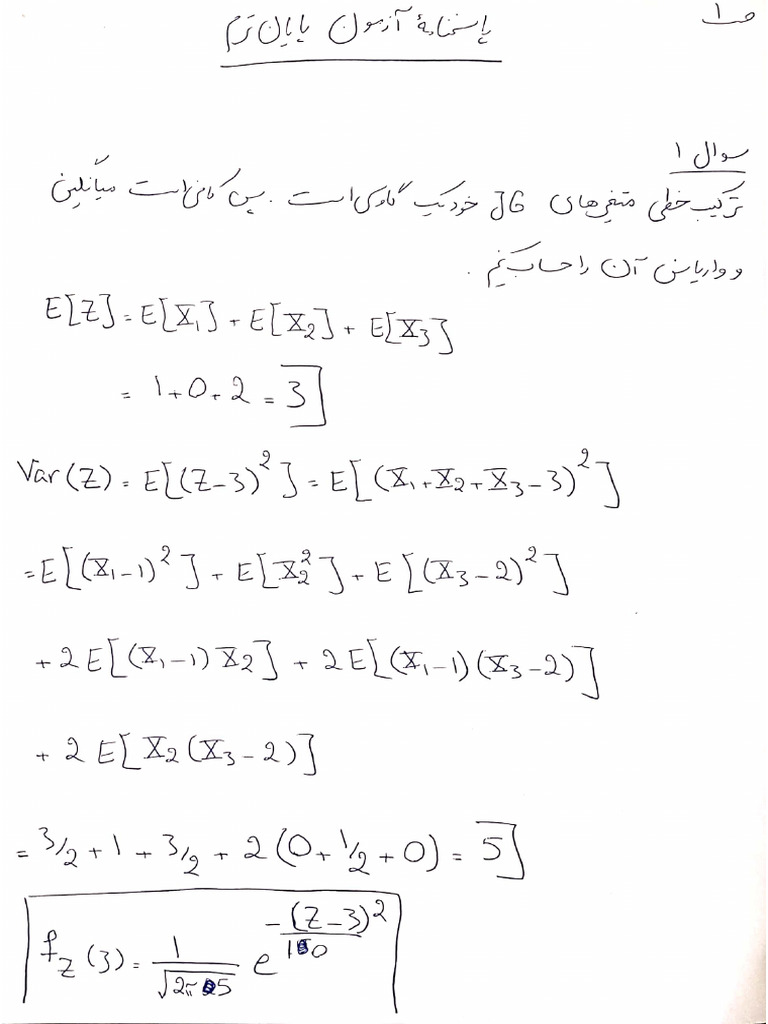 ص ۱
پاسخنامهٔ آزمون پایان ترم
سوال ۱
ترکیب خطی متغیرهای JG خود یک گاوسی است. پس کافی است میانگین
و واریانس آن را حساب کنیم.
E[Z] = E[X₁] + E[X₂] + E[X₃]
= 1+0+2 = 3
Var(Z) = E[(Z-3)²] = E[(X₁+X₂+X₃-3)²]
= E[(X₁-1)²] + E[X₂²] + E[(X₃-2)²]
+ 2E[(X₁-1)X₂] + 2E[(X₁-1)(X₃-2)]
+ 2E[X₂(X₃-2)]
= 3/2 + 1 + 3/2 + 2(0+1/2+0) = 5
f_Z(3) = 1/√2π5 e^(-(Z-3)²/10)